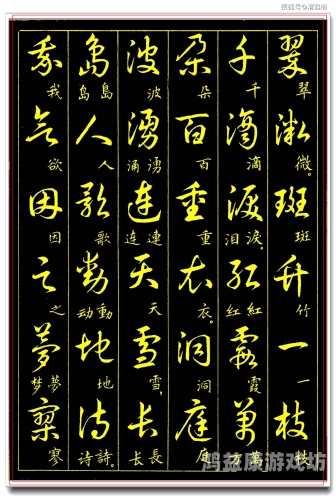 搜狐号@
翠微斑竹一枝
翠微。斑竹一枝
千滴淚紅霞萬
千滴淚,紅霞萬
泪红万
朵百重衣洞庭
朵百重衣。洞庭
波湧連天雪長
波湧連天雪,長
涌连长
島人歌動地詩
島人歌動地詩。
岛动诗
我欲因之夢寥
我欲因之夢寥
梦
鸿益康游戏坊